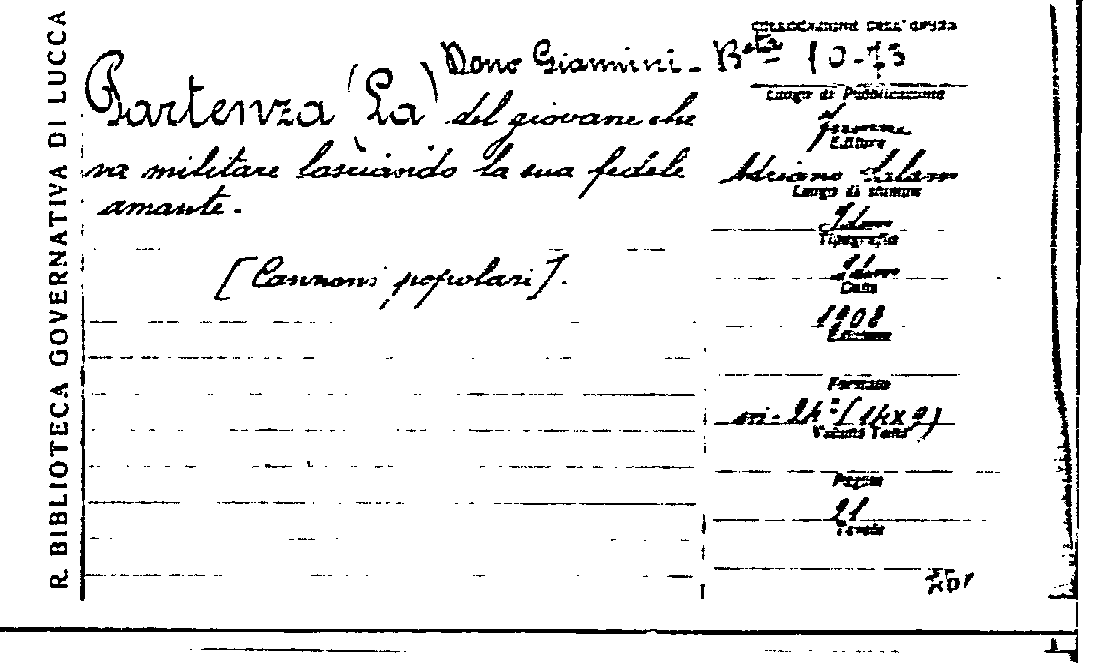 R. BIBLIOTECA GOVERNATIVA DI LUCCA
Dono Giannini - Bsta 10-73
Partenza (La) del giovane che
va militare lasciando la sua fedele
amante.
[Canzoni popolari].
COLLOCAZIONE DELL'OPERA
Luogo di Pubblicazione
Firenze
Editore
Adriano Salani
Luogo di stampa
Idem
Tipografia
Idem
Data
1908
Edizione
Formato
in-24° (14x9)
Volumi Tomi
Pagine
21
Tavole